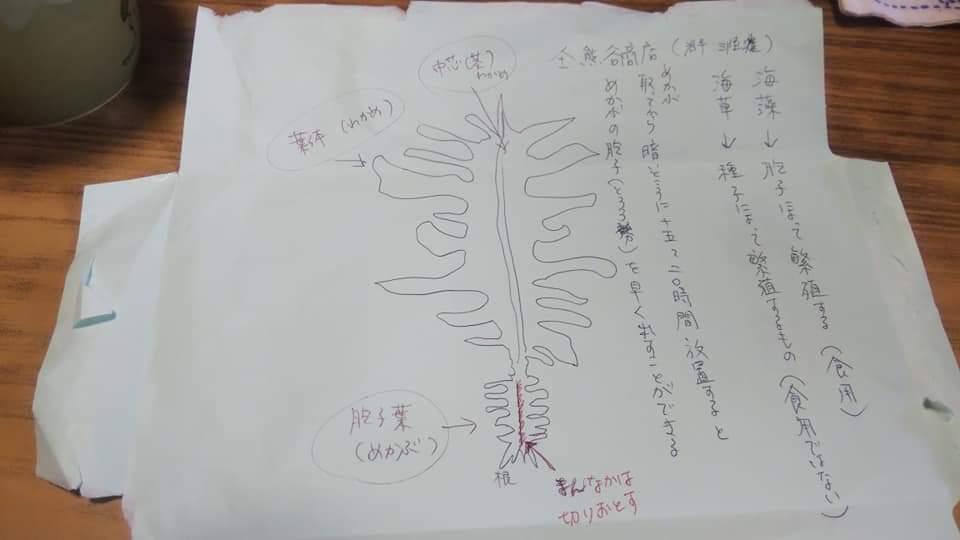 熊谷商店
海藻↓胞子によって繁殖する(食用)
海草↓種子によって繁殖するもの(食用ではない)
めかぶ
取ってから暗いところに十五〜二〇時間放置すると
めかぶの胞子(とろろ)を早く出すことができる
中芯(茎)
わかめ
葉体(わかめ)
胞子葉
(めかぶ)
根
まんなかは
切りおとす